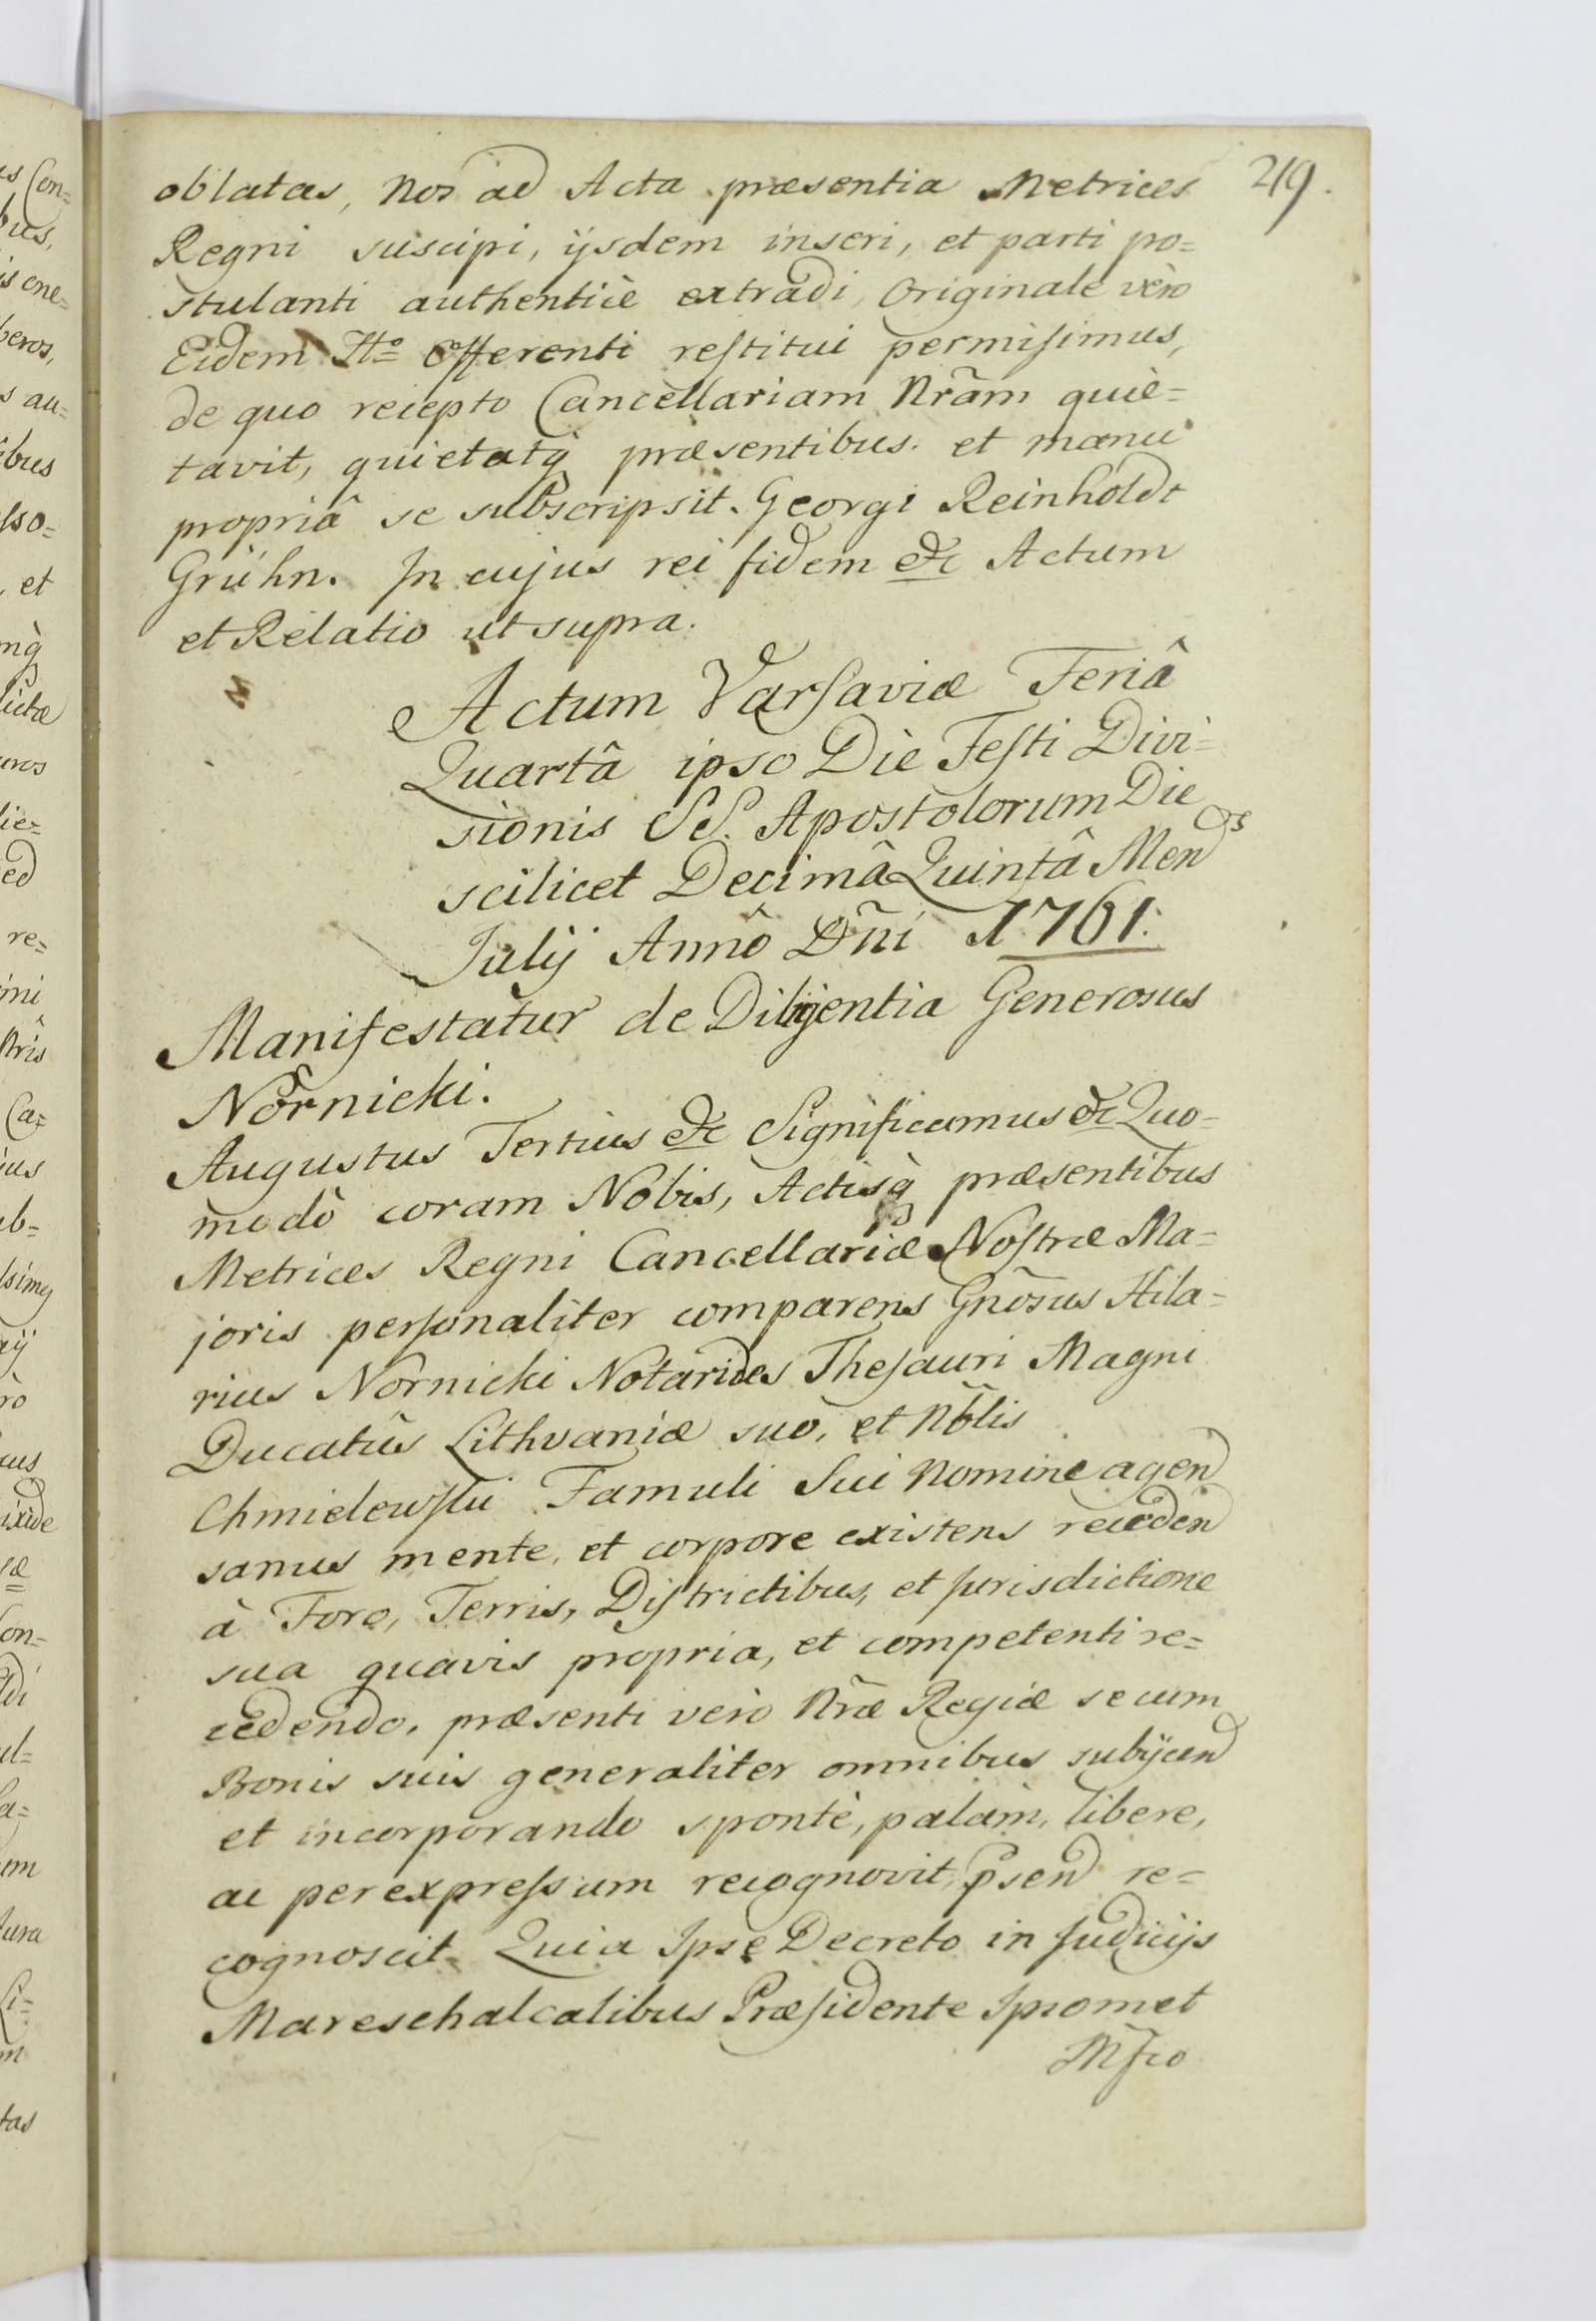 219.
oblatas, Nos ad Acta præsentia Metrices
Regni suscipi, ijsdem inseri, et parti po=
stulanti authenticè extradi, Originale verò
Eidem Itto Offerenti restitui permisimus,
de quo recepto Cancellariam Nrãm quie=
tavit, quietatq præsentibus. et manu
propriâ se subscripsit. Georgi Reinholdt
Grühn. In cujus rei fidem &c Actum
et Relatio ut supra.
Actum Varsaviæ Feriâ
Quartâ ipso Die Festi Divi=
sionis SS. Apostolorum Die
scilicet Decimâ Quintâ Mend
Julij Annô Dñi 1761.
Manifestatur de Diligentia Generosus
Nornicki.
Augustus Tertius &c Significamus &c Quo=
modô coram Nobis, Actisq præsentibus
Metrices Regni Cancellariæ Nostræ Ma=
joris personaliter comparens Gnõsus Hila=
rius Nornicki Notarius Thesauri Magni
Ducatûs Lithvaniæ suô, et Nõblis
Chmielewski Famuli Sui Nomine agend
sanus mente, et corpore existens receden
à Foro, Terris, Districtibus, et Jurisdictione
sua quavis propria, et competenti re=
cedendo, præsenti verò Nrãæ Regiæ se cum
Bonis suis generaliter omnibus subijcend
et incorporando spontè, palàm, libere,
ac per expressum recognovit, psend re=
cognoscit Quia Ipse Decreto in Judicijs
Mareschalcalibus Præsidente Ipsomet
Mfco